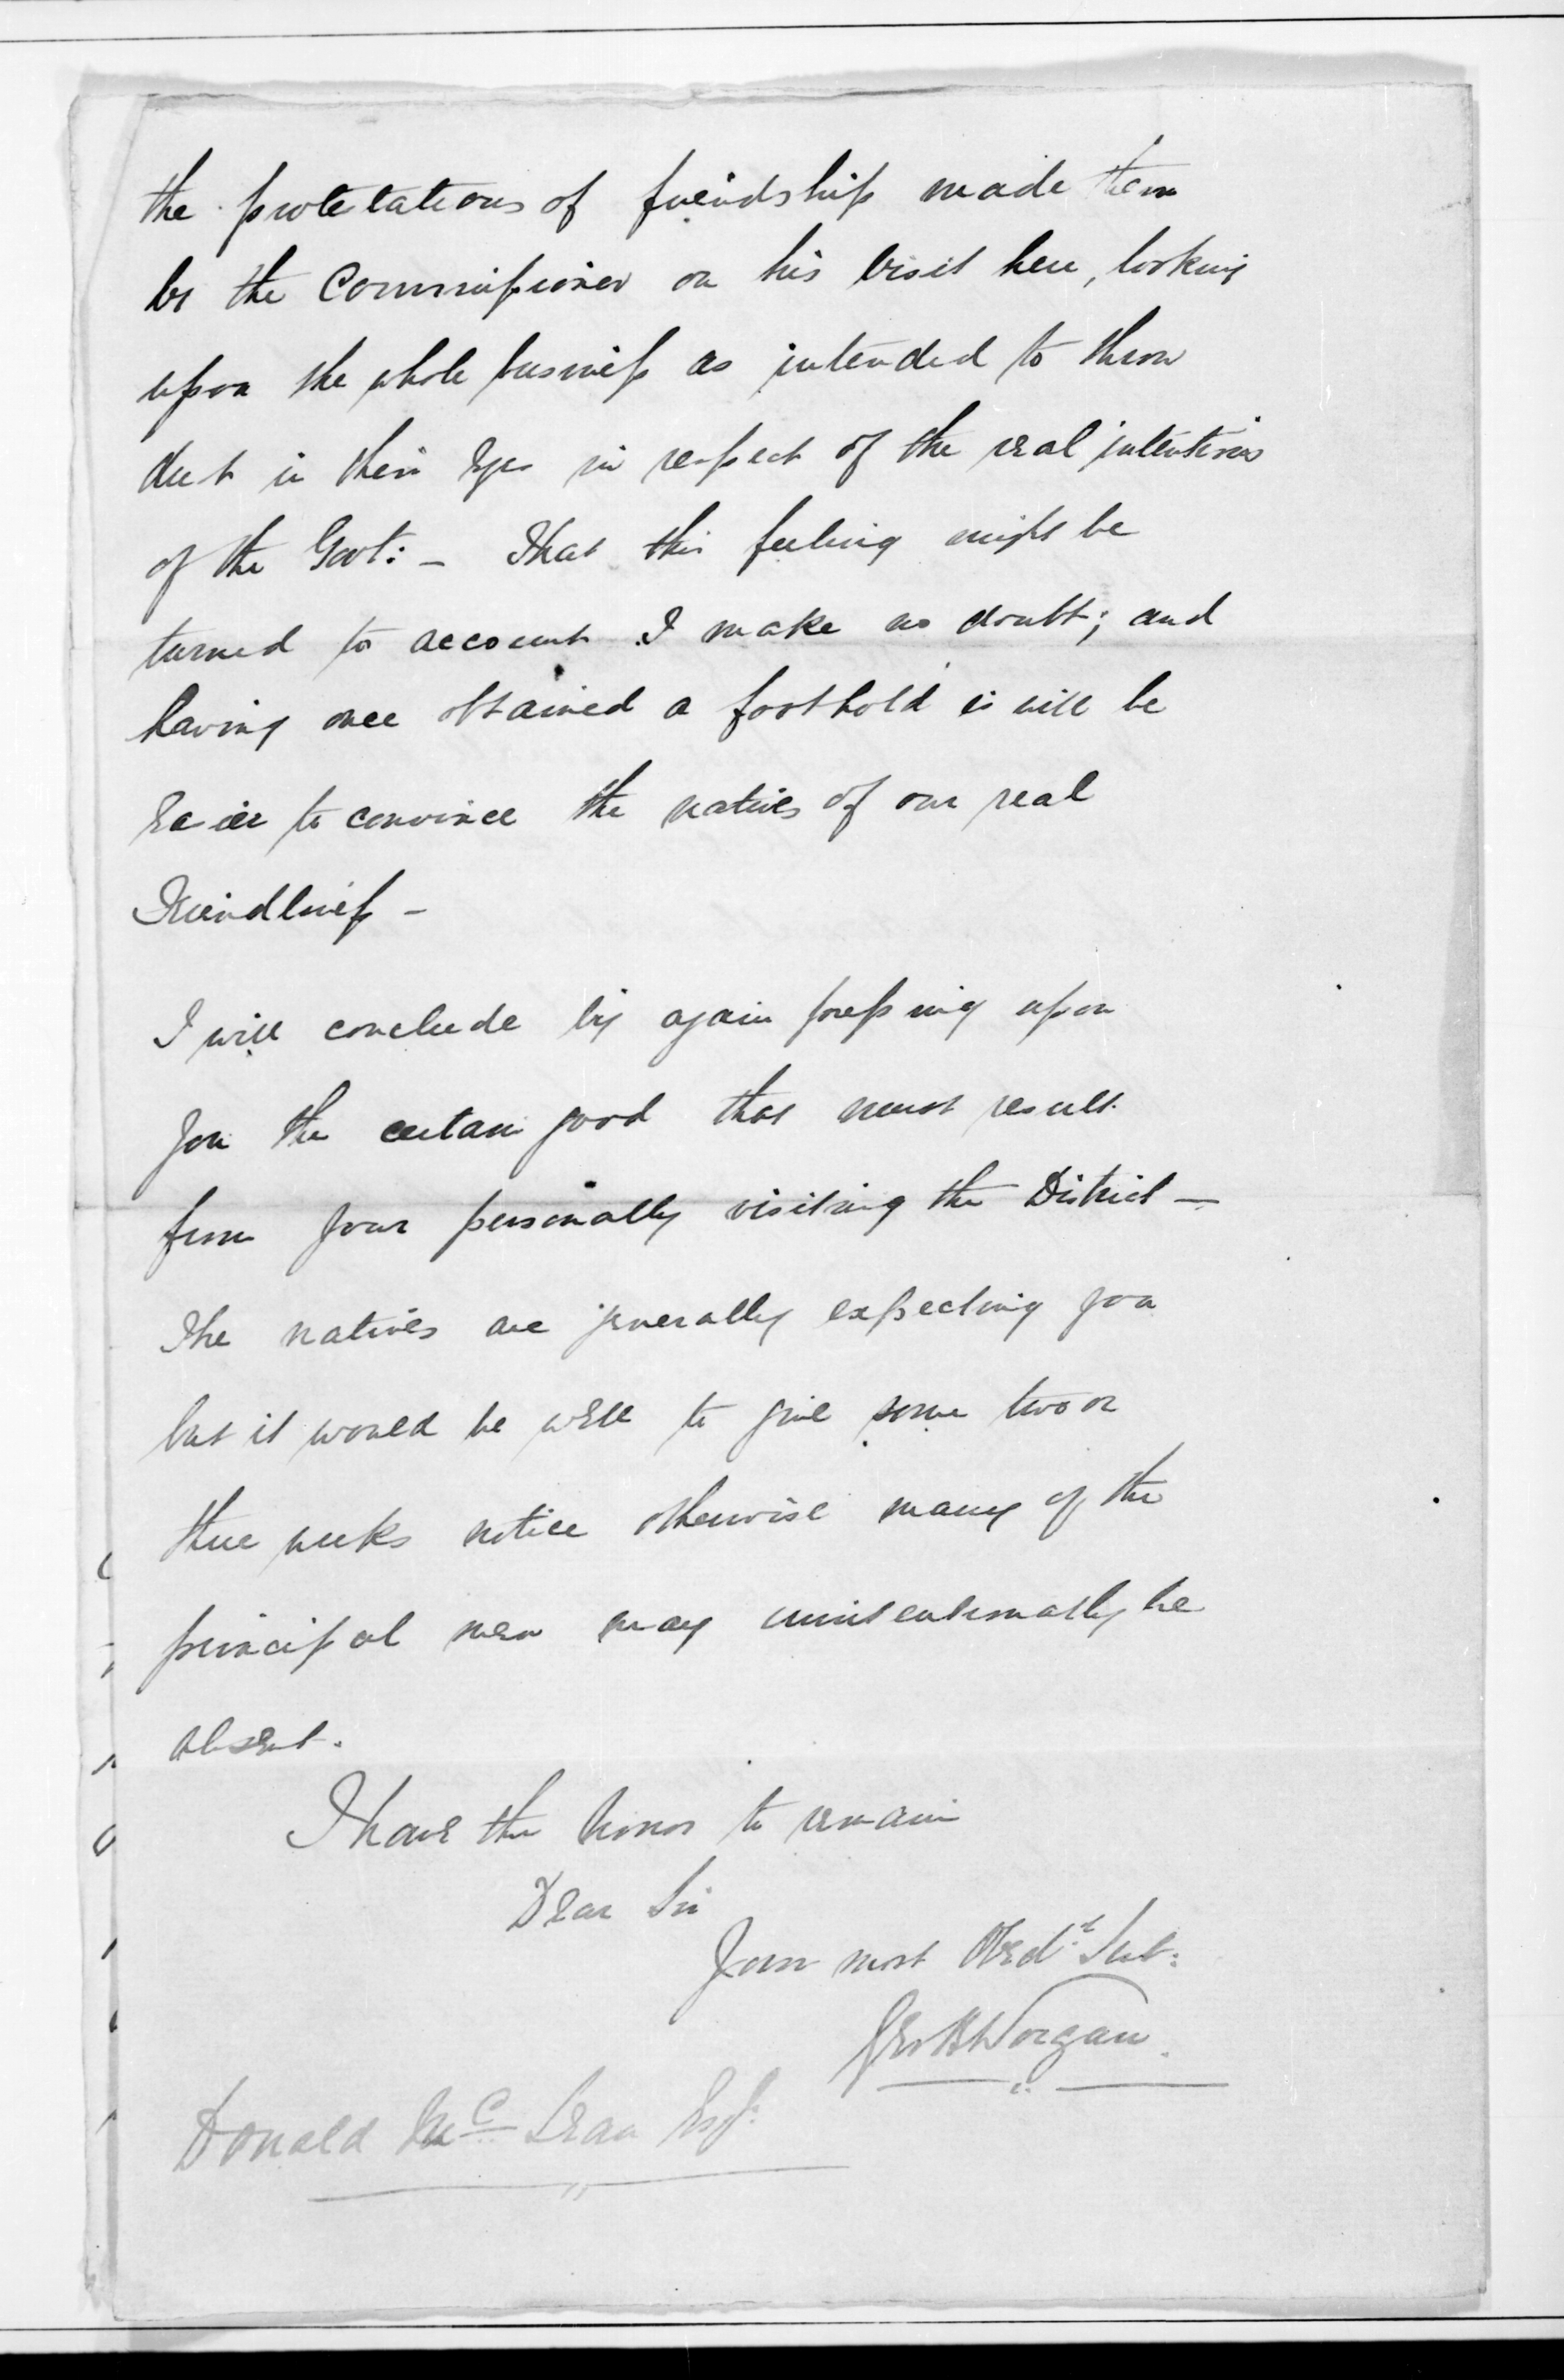 the protestations of friendship made them
by the Commissioner on his visit here, looking
upon the whole business as intended to throw
dust in their Eyes in respect of the real intentions
of the Govt: – That this feeling might be
turned to account I make no doubt; and
having once obtained a foothold it will be
Easier to convince the natives of our real
Friendliness –
I will conclude by again pressing upon
you the certain good that must result
from your personally visiting the District –
The natives are generally expecting you
but it would be well to give some two or
three weeks notice otherwise many of the
principal men may unintentionally be
absent.
I have the honor to remain
Dear Sir
Your most Obedt. Servt:
Geo H Worgan.
Donald McLean Esq: